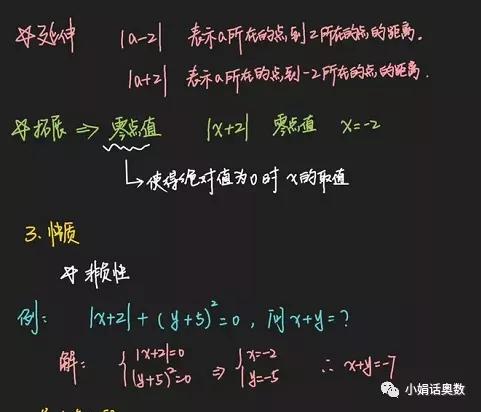 ☆延伸 |a-2| 表示a所在的点到2所在的点的距离.
|a+2| 表示a所在的点到-2所在的点的距离.
☆拓展 ⇒ 零点值 |x+2| 零点值 x=-2
↳使得绝对值为0时 x的取值
3.性质
☆非负性
例: |x+2|+(y+5)²=0, 问x+y=?
解: {|x+2|=0 ⇒ {x=-2 ∴ x+y=-7
(y+5)²=0 y=-5
小娟话奥数